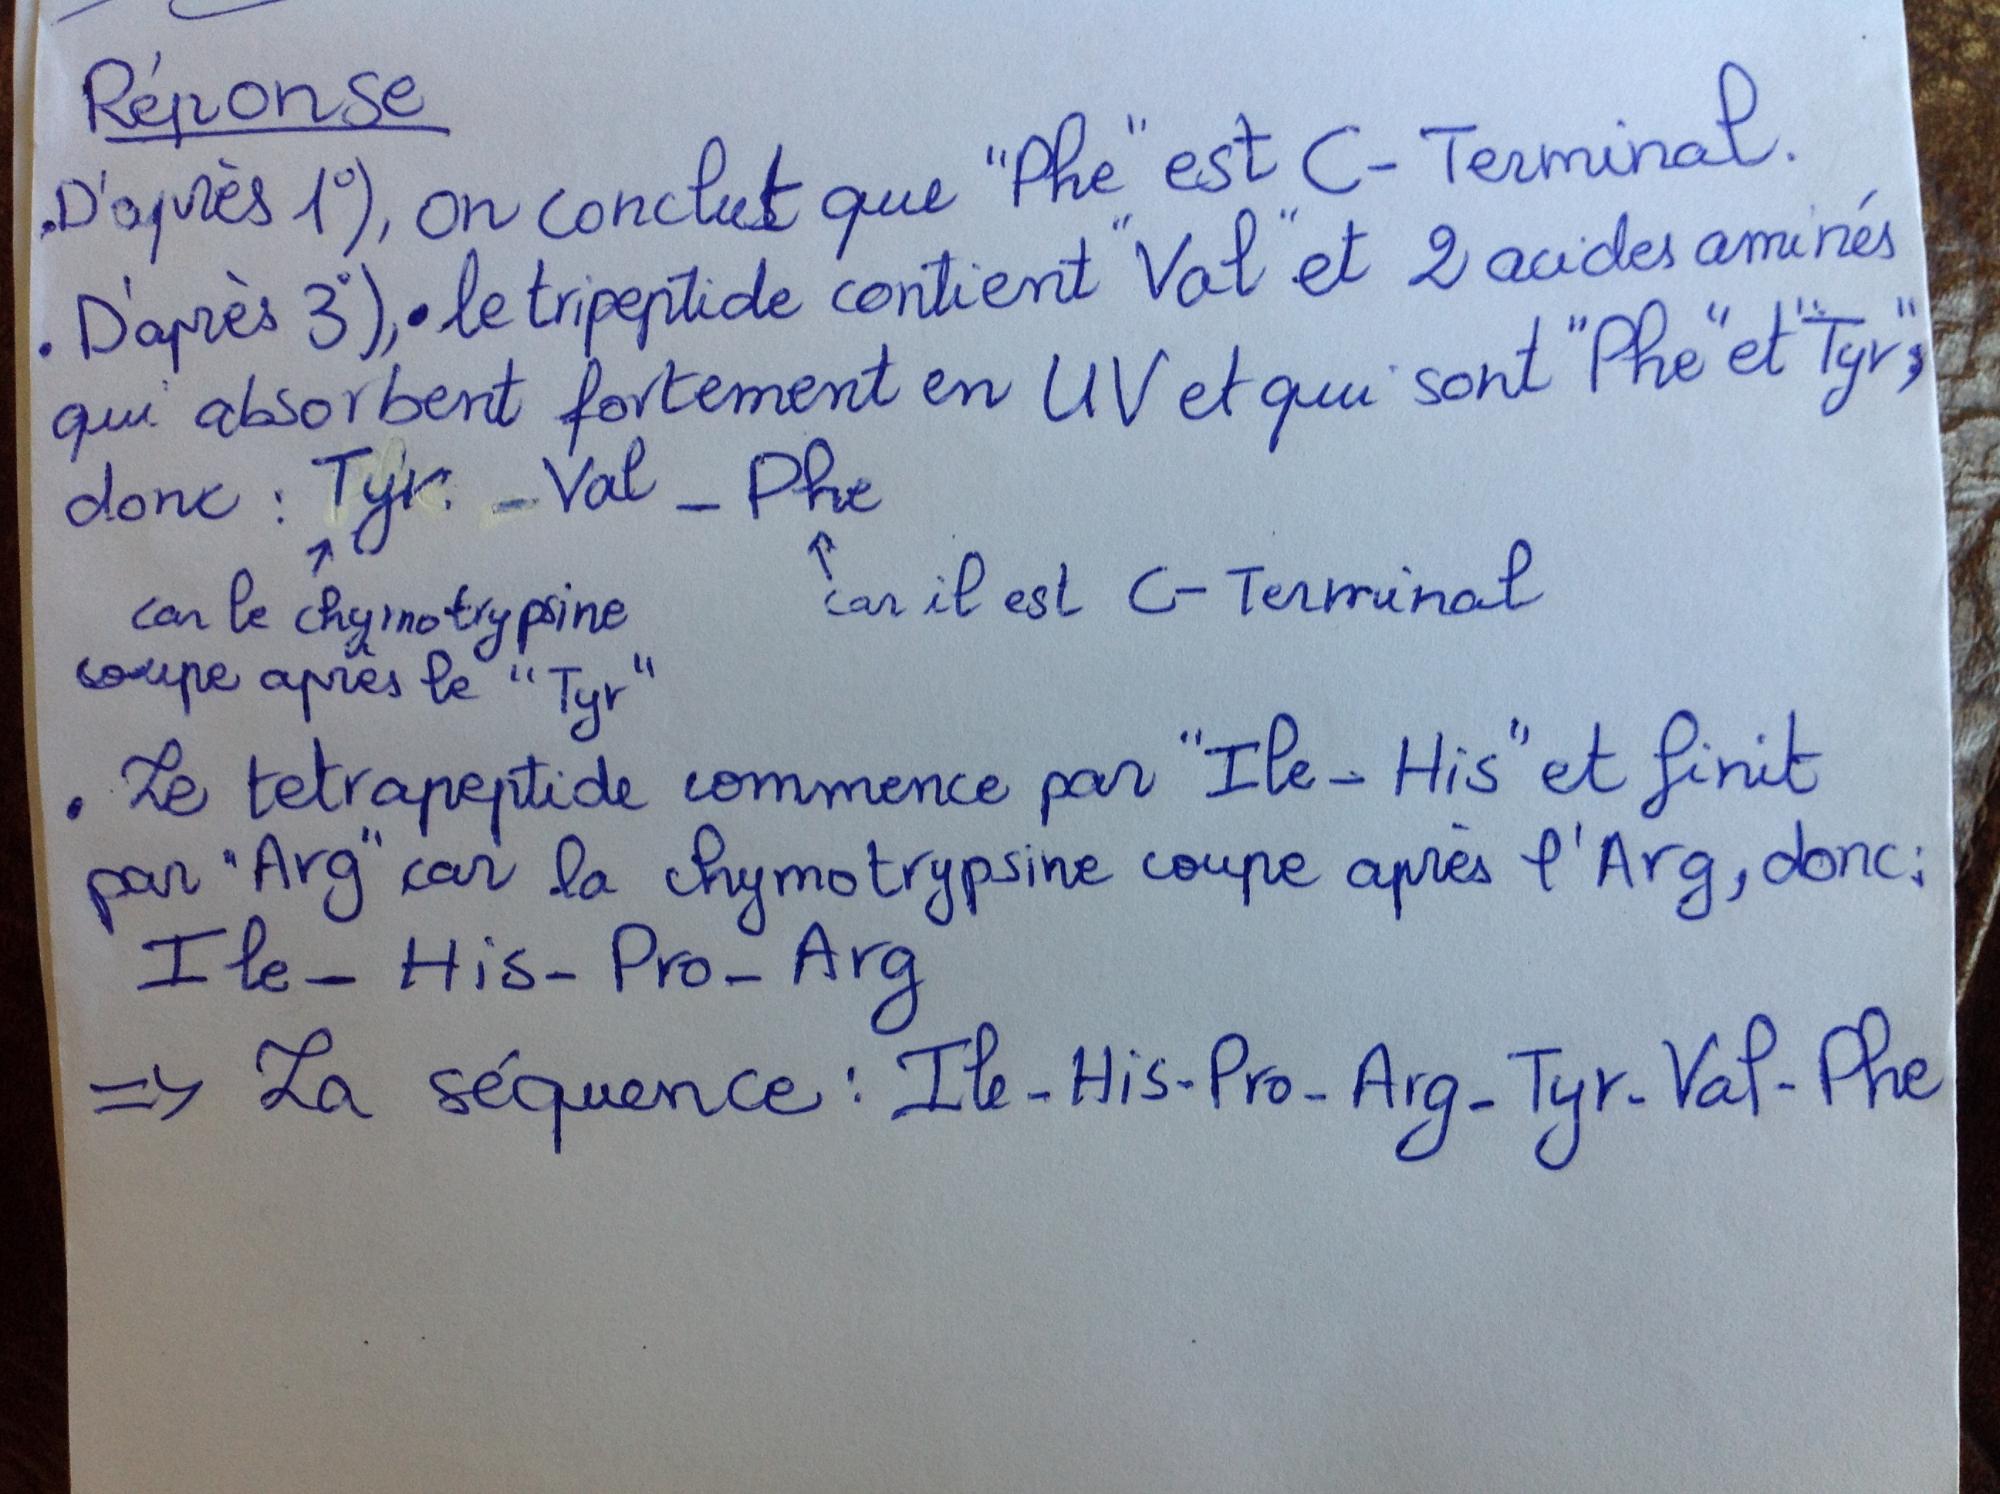 Réponse
.D'après 1°), on conclut que "Phe" est C-Terminal.
. D'après 3°), • le tripeptide contient "Val" et 2 acides aminés
qui absorbent fortement en UV et qui sont "Phe" et "Tyr",
donc : Tyr - Val - Phe
car le chymotrypsine
coupe après le "Tyr"
car il est C-Terminal
. Le tetrapeptide commence par "Ile - His" et finit
par "Arg" car la chymotrypsine coupe après l'Arg, donc:
Ile - His - Pro - Arg
=> La séquence : Ile - His - Pro - Arg - Tyr - Val - Phe